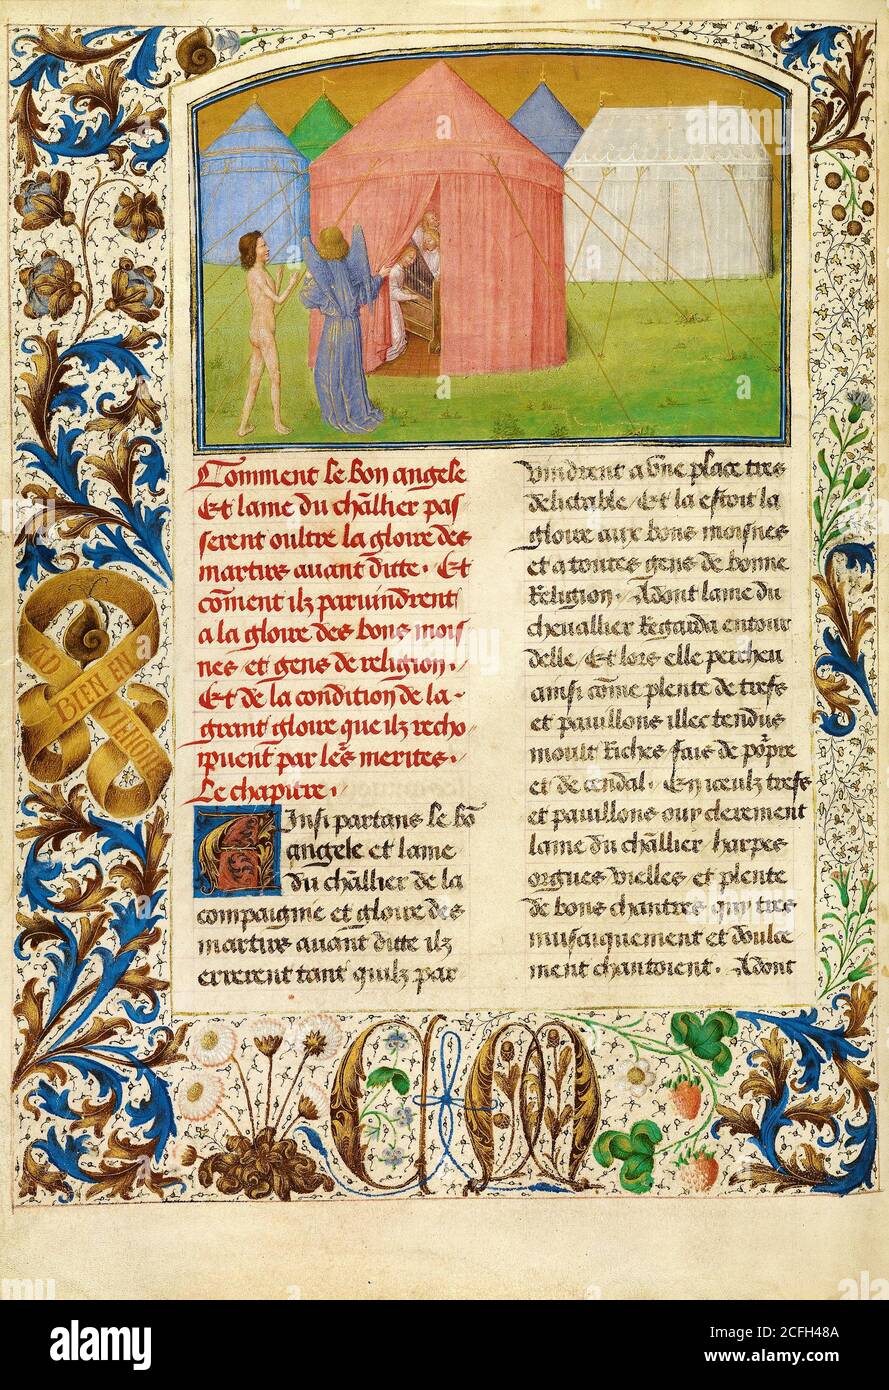 Comment le bon angele
Et lame du chãllier pas
serent oultre la gloire des
martirs auant ditte. Et
cõment ilz paruindrent
a la gloire des bons mois
nes et gens de religion.
Et de la condition de la
grant gloire que ilz recho
ipuent par le͂s merites.
Le chapitre.
Ainsi partans le bõ
angele et lame
du chãllier de la
compaignie et gloire des
martirs auant ditte ilz
errerent tant quilz par
vindrent a vne place tres
delictable / Et la estoit la
gloire aux bons moisnes
et a toutes gens de bonne
Religion. Adont lame du
cheuallier Regarda entour
delle / Et lors elle percheu
ainsi cõme plente de trefs
et pauillons illec tendus
moult Riches fais de põpre
et de cendal. En iceulz trefs
et pauillons ouy clerement
lame du chãllier harpes
orgues vielles et plente
de bons chantres qui tres
musaiquement et doulce
ment chantoient. Adont
BIEN EN
VIENGNE
C M
alamy
alamy
Image ID: 2CFH48A
www.alamy.com